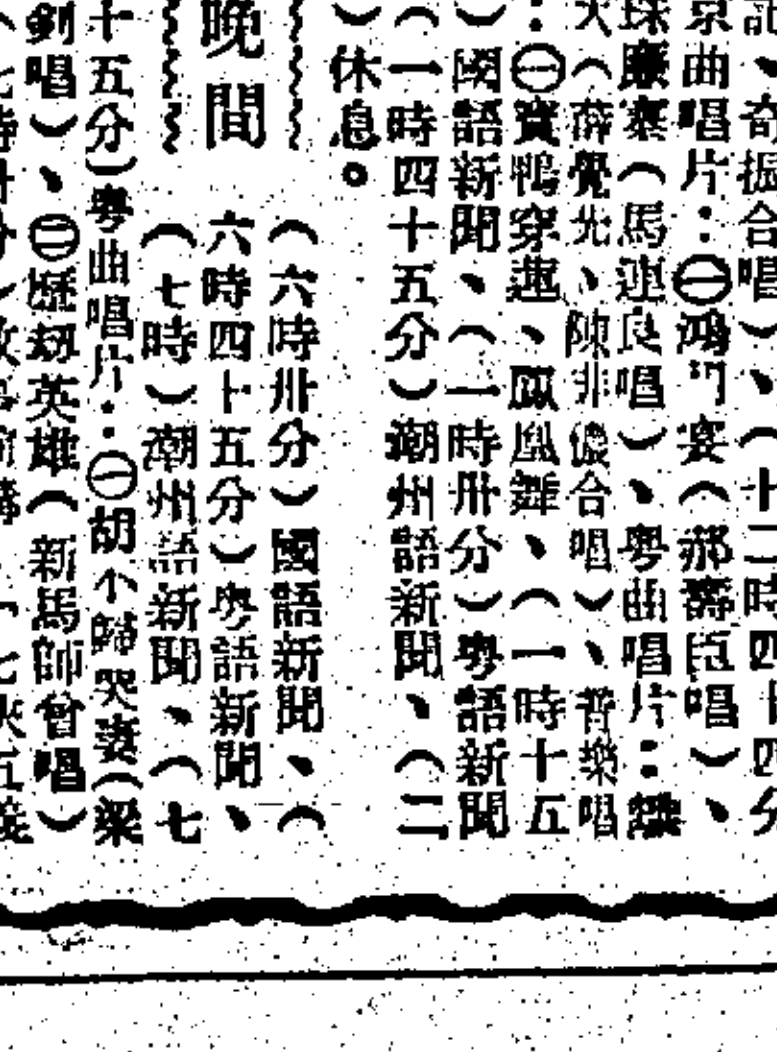 記、奇掘合唱）、（十二時四十四分
京曲唱片：㊀鴻門宴（郝壽臣唱）、
珠簾寨（馬連良唱）、粵曲唱片：
（薛覺先、陳非儂合唱）、音樂唱
：㊀寶鴨穿蓮、鳳凰舞、（一時十五
）國語新聞、（一時卅分）粵語新聞
（一時四十五分）潮州語新聞、（二
）休息。
晚間
（六時卅分）國語新聞、（
六時四十五分）粵語新聞、
（七時）潮州語新聞、（七
十五分）粵曲唱片：㊀胡不歸哭妻（梁
劍唱）、㊁歷刼英雄（新馬師曾唱）
（七時卅分）故事演講、（七俠五義